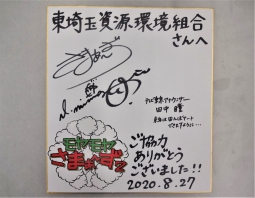 東埼玉資源環境組合
さんへ
テレビ東京アナウンサー
田中瞳
モヤモヤ
さまぁ~ず2
ご協力
ありがとう
ございました!!
2020.8.27